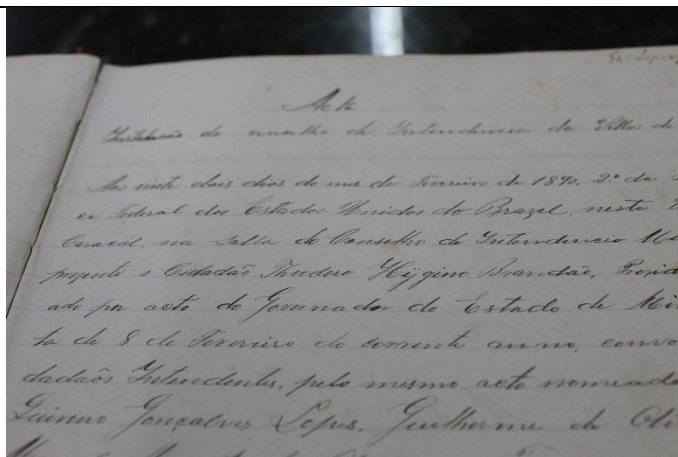 Lopes
Acta
Installação do conselho de Intendencia da Villa de
Ao vinte dois dias do mes de Fevereiro de 1890, 2º da
ca Federal dos Estados Unidos do Brazil, nesta
Caracól, na Salla do Conselho de Intendencia M
prezente o Cidadão Theodoro Hygino Brandão, Prezid
ado por acto do Governador do Estado de Mi
ta de 8 de Fevereiro do corrente anno, convo
dadaõs Intendentes, pelo mesmo acto nomeado
Quirino Gonçalves Lopes, Guilherme de Oli